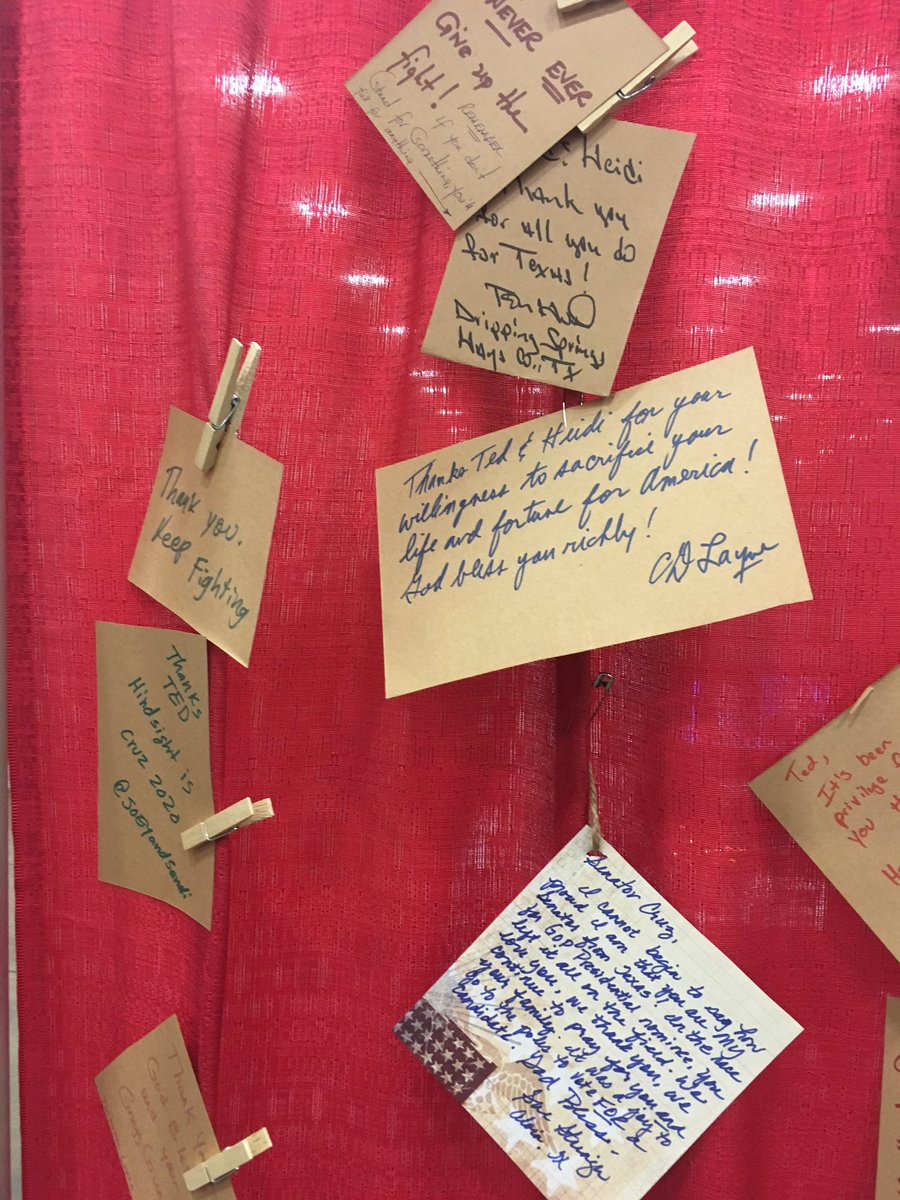 NEVER EVER
Give up the
fight!
REMEMBER
if you don't
Stand for Something, you'll
fall for anything
Heidi
Thank you
for all you do
for Texas!
Dripping Springs
Hays Co., TX
Thanks Ted & Heidi for your
willingness to sacrifice your
life and fortune for America!
God bless you richly!
CD Layne
Thank you.
Keep Fighting
Thanks
TED
Hindsight is
Cruz 2020
@SOEYandsandi
Ted,
It's been
privilege
you
Senator Cruz,
I cannot begin to say how
proud I am that you are my
Senator from Texas. In the race
for GOP Presidential nominee, you
left it all on the field. We
love you, we thank you, we
continue to pray for you and
your family. It was a joy to
go to the polls to vote FOR a
candidate. God Bless.
Alvin, TX
Thank
God
one